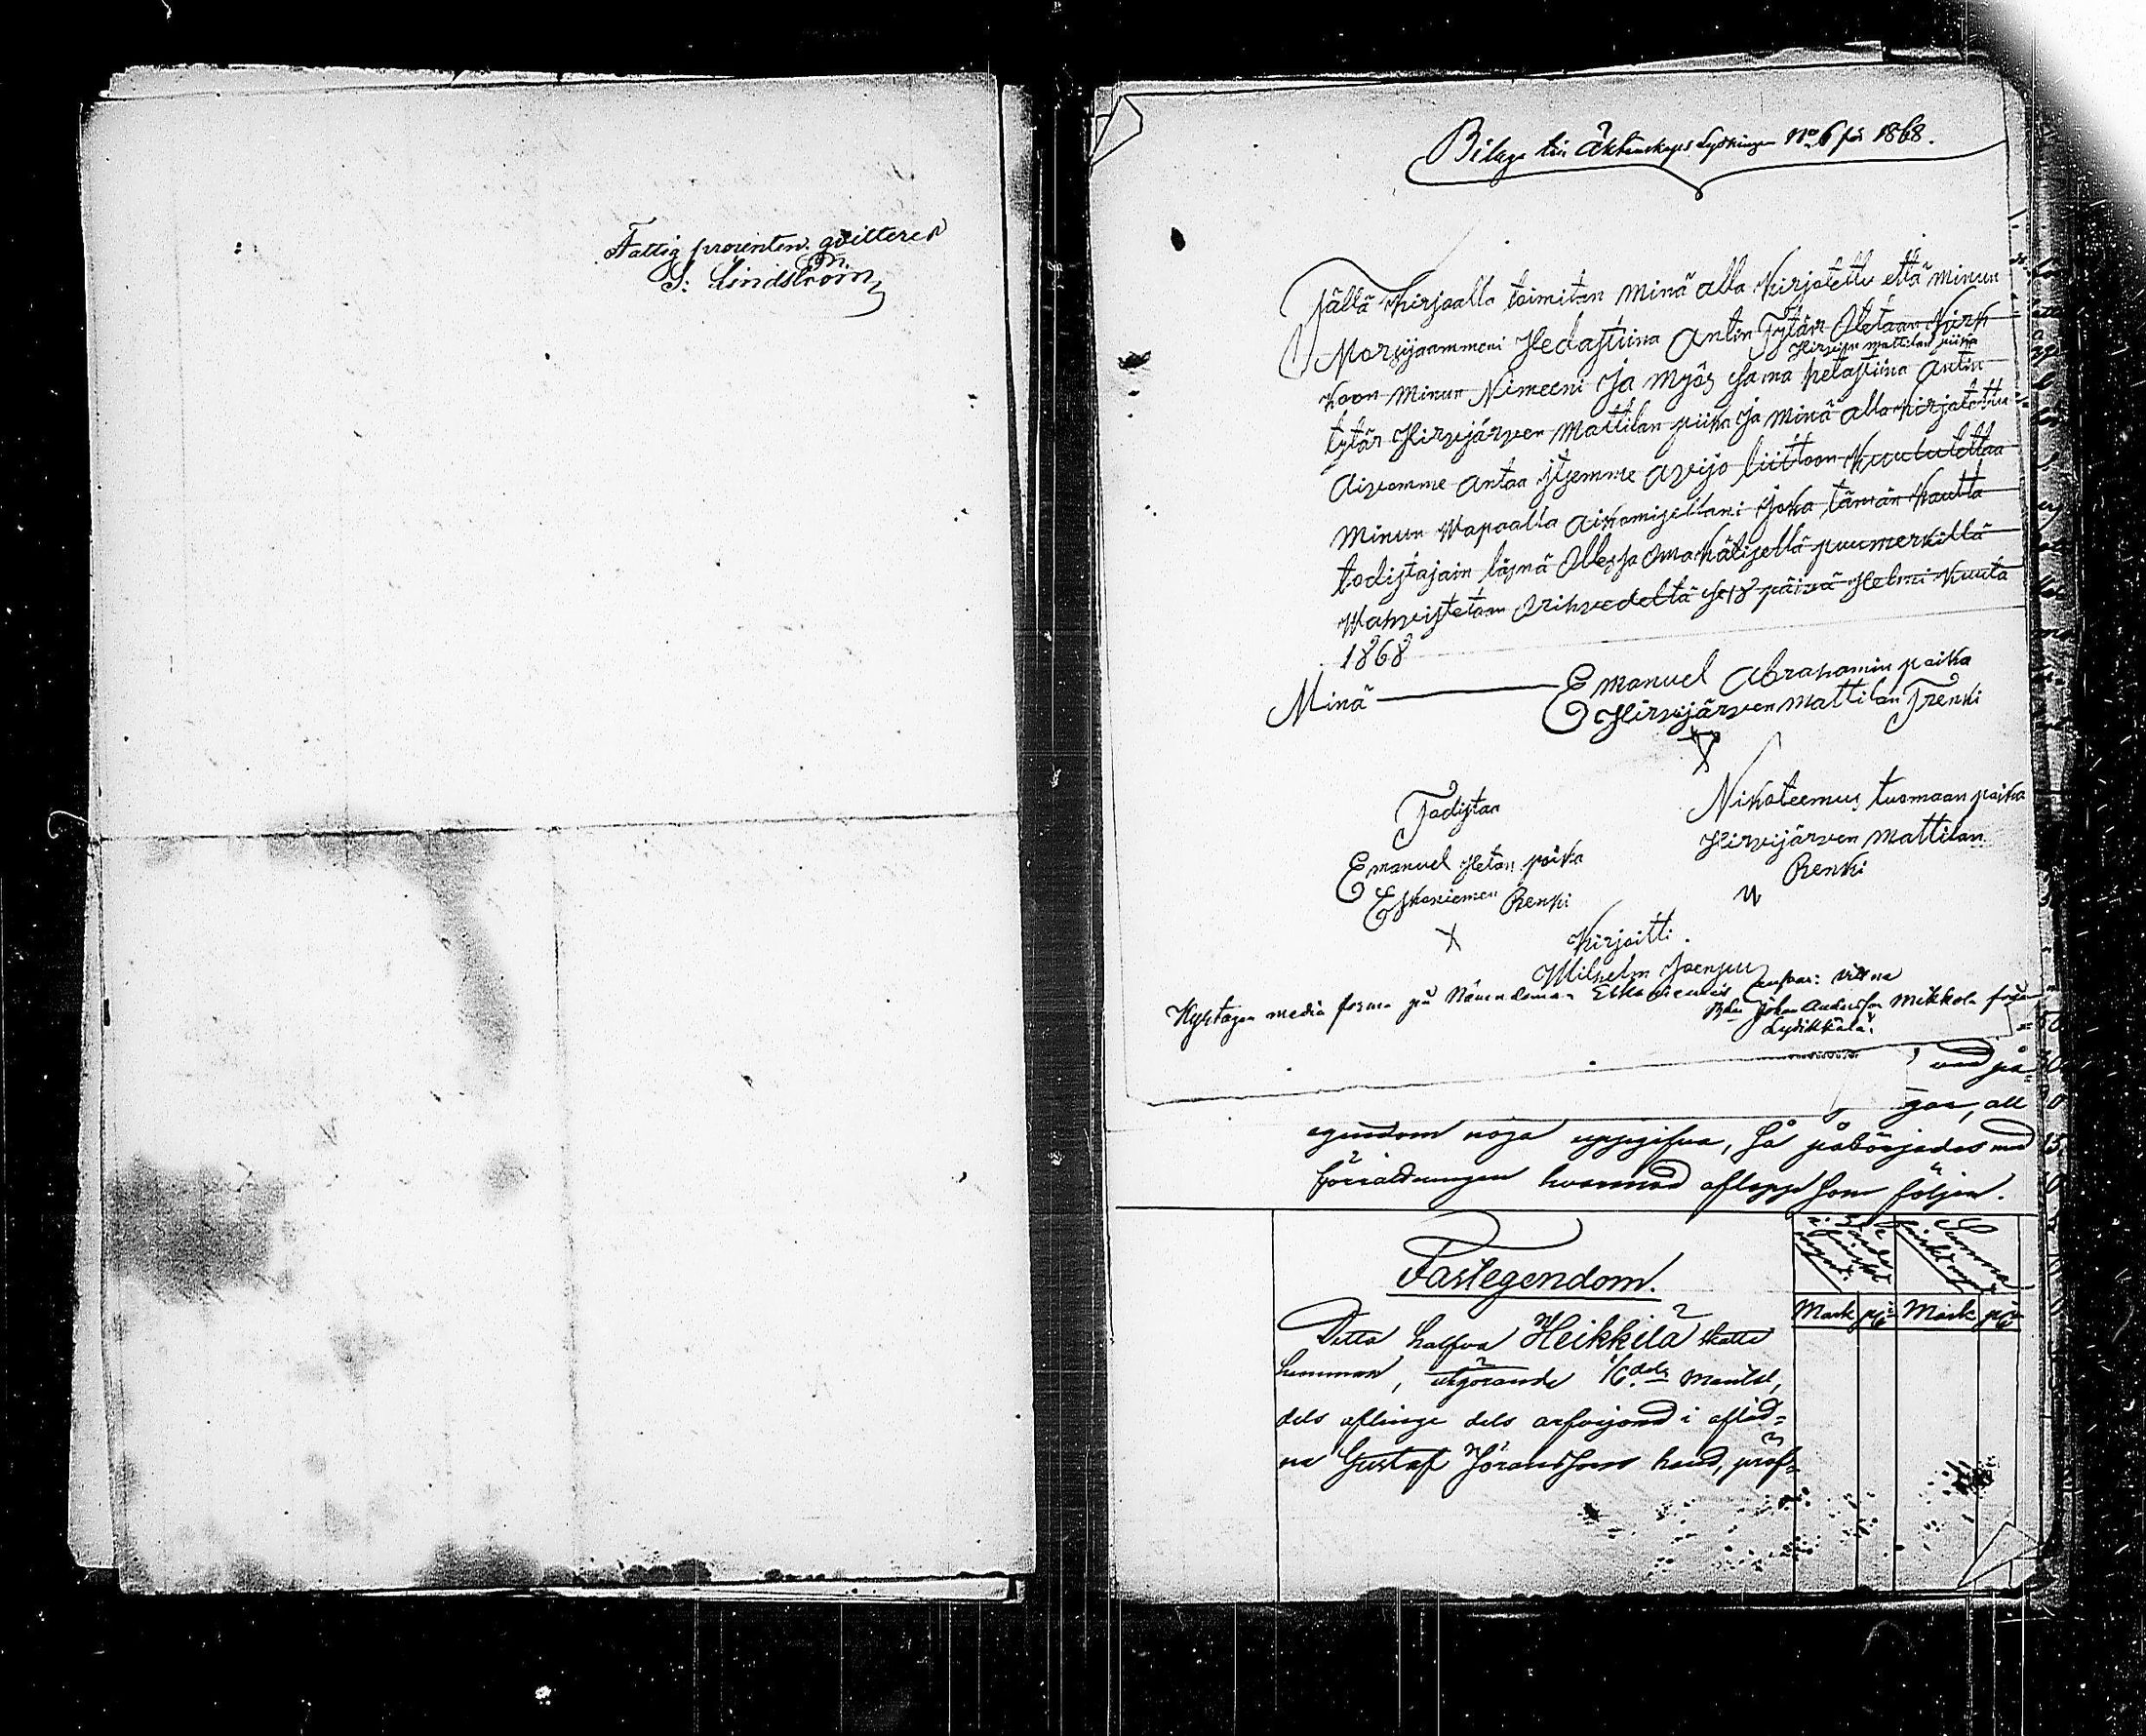 Fattig procenten qvitterer
S: Lindström
Bilaga till Äktenskaps Lysningen No 6 för 1868.
Tällä Kirjaalla toimitan minä alla Kirjotettu että minun
Morsijaammeni Hedastiina Antin Tytär Otetaan Kirk
Hirvijen mattilan piika
koon minun Nimeeni ja myös sama hetastiina Antin
tytär Hirvijärven Mattilan piika ja minä alla kirjotettu
Aivomme Antaa itsemme Avijo liittoon Kuulutettaa
minun Wapaalla Aikomisellani joka tämän Kautta
todistajain läsnä Ollessa Oma Kätisellä puumerkillä
Wahvistetaan Orihvedeltä se 18 päivä Helmi Kuuta
1868
Minä Emanuel Abrahamin poika
Hirvijärven Mattilan Trenki
Todistaa
Nikoteemus tuomaan poika
Emanuel Hetan poika
Hirvijärven Mattilan
Eskoniemen Renki
Renki
X
Kirjoitti
Wilhelm Joensuu
på Nämndeman
Johan Andersson Mikkola från
Lydikkälä.
vad på
gas, all
egendom noga uppgifva, så påbörjades med
förrättningen hvarmed aflopp som följer.
Fastegendom.
Summa
Mark pi Mark pi
Detta halfva Heikkilä skatte
hemman, utgörande 1/6 dels mantal,
dels aflinge dels arfvejord i aflid=
na Gustaf Göransson hand,